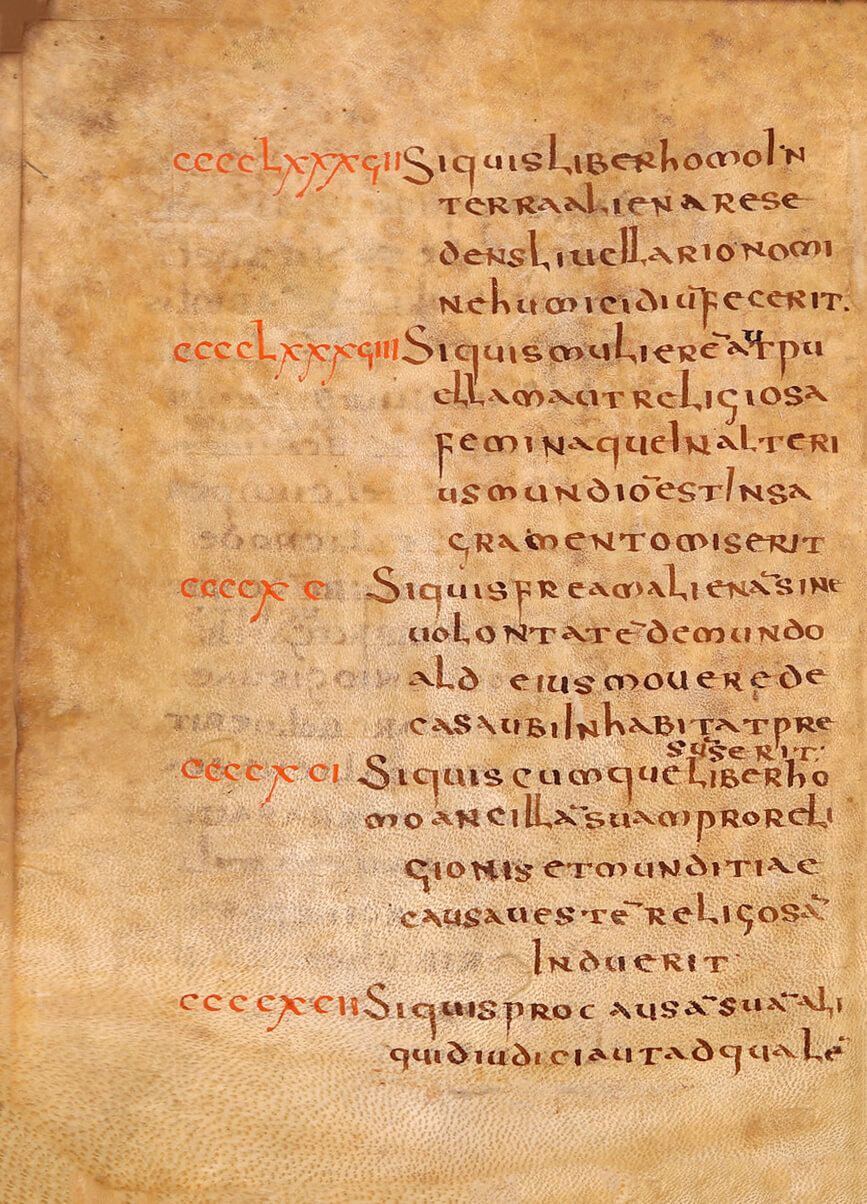 ccccLxxxçii Siquis liber homo in
terra aliena rese
dens liuellario nomi
ne humicidiū fecerit.
ccccLxxxçiii Siquis mulierē aut pu
ellam aut religiosa
femina que in alteri
us mundiō est in sa
cramento miserit
ccccx c Siquis fream alienā sine
uolontatē de mundo
ald eius mouere de
casa ubi inhabitat pre
sūserit:
ccccxci Siquiscumque liber ho
mo ancillā suam pro reli
gionis et munditiae
causa uestē religosā
induerit
ccccxcii Siquis pro causā suā ali
quid iudici aut ad qualē